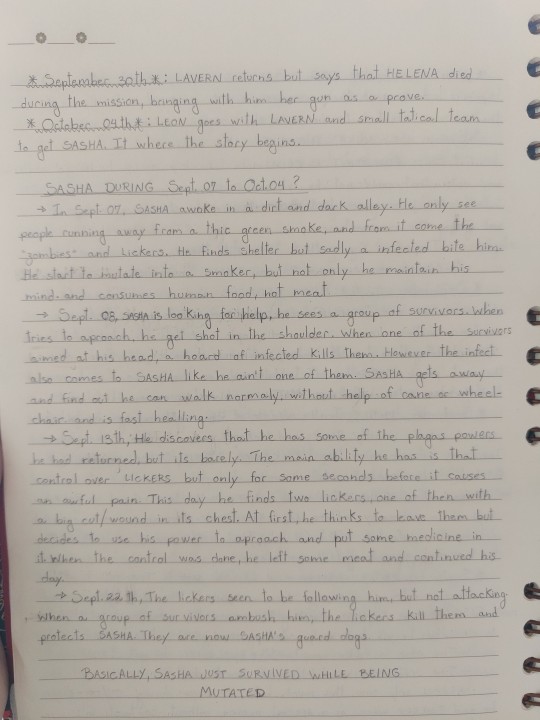 * September 30th *: LAVERN returns but says that HELENA died
during the mission, bringing with him her gun as a prove.
* October 04th *: LEON goes with LAVERN and small tatical team
to get SASHA. It where the story begins.
SASHA DURING Sept. 07 to Oct. 04?
→ In Sept. 07, SASHA awoke in a dirt and dark alley. He only see
people running away from a thic green smoke, and from it come the
"zombies" and Lickers. He finds shelter but sadly a infected bite him.
He start to mutate into a smoker, but not only he maintain his
mind, and consumes human food, not meat
→ Sept. 08, SASHA is looking for help, he sees a group of survivors. When
tries to aproach, he get shot in the shoulder. When one of the survivors
aimed at his head, a hoard of infected kills them. However the infect
also comes to SASHA like he ain't one of them. SASHA gets away
and find out he can walk normaly, without help of cane or wheel-
chair and is fast healling.
→ Sept. 13th, He discovers that he has some of the plagas powers
he had returned, but its barely. The main ability he has is that
control over LICKERS but only for some seconds before it causes
an awful pain. This day he finds two lickers, one of then with
a big cut/wound in its chest. At first, he thinks to leave them but
decides to use his power to aproach and put some medicine in
it. When the control was done, he left some meat and continued his
day.
→ Sept. 22th, The lickers seen to be following him, but not attacking
When a group of survivors ambush him, the lickers kill them and
protects SASHA. They are now SASHA's guard dogs
BASICALLY, SASHA JUST SURVIVED WHILE BEING
MUTATED